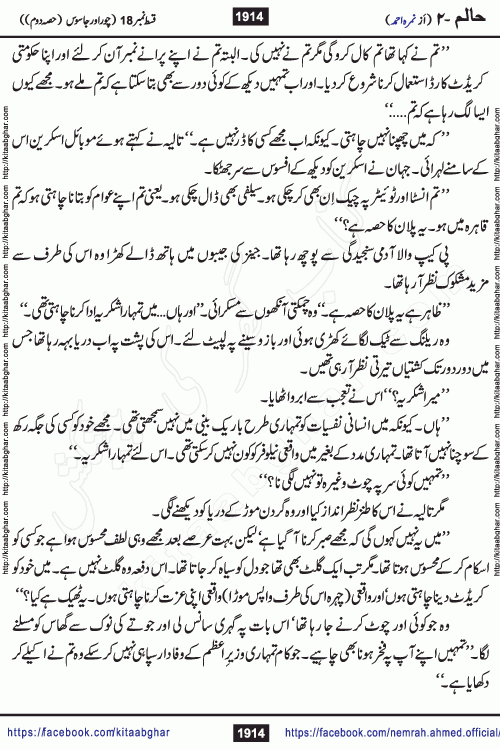 حالم -۲ (از نمرہ احمد)
1914
قسط نمبر 18 (چور اور جاسوس (حصہ دوم))
’’تم نے کہا تھا تم کال کرو گی مگر تم نے نہیں کی۔ البتہ تم نے اپنے پرانے نمبر آن کر لئے اور اپنا حکومتی
کریڈٹ کارڈ استعمال کرنا شروع کر دیا۔ اور اب تمہیں دیکھ کے کوئی دور سے بھی بتا سکتا ہے کہ تم ملے ہو۔ مجھے کیوں
ایسا لگ رہا ہے کہ تم.....‘‘
’’کہ میں چھپنا نہیں چاہتی۔ کیونکہ اب مجھے کسی کا ڈر نہیں ہے۔‘‘ تالیہ نے کہتے ہوئے موبائل اسکرین اس
کے سامنے لہرائی۔ جہان نے اسکرین کو دیکھ کے افسوس سے سر جھٹکا۔
’’تم انسٹا اور ٹوئیٹر پہ چیک اِن بھی کر چکی ہو۔ سیلفی بھی ڈال چکی ہو۔ یعنی تم اپنے عوام کو بتانا چاہتی ہو کہ تم
قاہرہ میں ہو۔ یہ پلان کا حصہ ہے؟‘‘
پی کیپ والا آدمی سنجیدگی سے پوچھ رہا تھا۔ جینز کی جیبوں میں ہاتھ ڈالے کھڑا وہ اس کی طرف سے
مزید مشکوک نظر آ رہا تھا۔
’’ظاہر ہے یہ پلان کا حصہ ہے۔‘‘ وہ چمکتی آنکھوں سے مسکرائی۔ ’’اور ہاں... میں تمہارا شکریہ ادا کرنا چاہتی تھی۔‘‘
وہ ریلنگ سے ٹیک لگائے کھڑی ہوئی اور بازو سینے پہ لپیٹ لئے۔ اس کی پشت پہ اب دریا بہہ رہا تھا جس
میں دور دور تک کشتیاں تیرتی نظر آ رہی تھیں۔
’’میرا شکریہ؟‘‘ اس نے تعجب سے ابرو اٹھایا۔
’’ہاں۔ کیونکہ میں انسانی نفسیات کو تمہاری طرح باریک بینی میں نہیں سمجھتی تھی۔ مجھے خود کو کسی کی جگہ رکھ
کے سوچنا نہیں آتا تھا۔ تمہاری مدد کے بغیر میں واقعی نیلوفر کو کون نہیں کر سکتی تھی۔ اس لئے تمہارا شکریہ۔‘‘
’’تمہیں کوئی سر پہ چوٹ وغیرہ تو نہیں لگی نا؟‘‘
مگر تالیہ نے اس کا طنز نظر انداز کیا اور وہ گردن موڑ کے دریا کو دیکھنے لگی۔
’’میں یہ نہیں کہوں گی کہ مجھے صبر کرنا آ گیا ہے‘ لیکن بہت عرصے بعد مجھے وہی لطف محسوس ہوا ہے جو کسی کو
اسکام کر کے محسوس ہوتا تھا۔ مگر تب ایک گلٹ بھی تھا جو دل کو سیاہ کر جاتا تھا۔ اس دفعہ وہ گلٹ نہیں ہے۔ میں خود کو
کریڈٹ دینا چاہتی ہوں اور واقعی (چہرہ اس کی طرف واپس موڑا) واقعی اپنی عزت کرنا چاہتی ہوں۔ یہ ٹھیک ہے کیا؟‘‘
وہ جو کوئی اور چوٹ کرنے جا رہا تھا‘ اس بات پہ گہری سانس لی اور جوتے کی نوک سے گھاس کو مسلنے
لگا۔ ’’تمہیں اپنے آپ پہ فخر ہونا بھی چاہیے۔ جو کام تمہاری وزیرِ اعظم کے وفادار سپاہی نہیں کر سکے وہ تم نے اکیلے کر
دکھایا ہے۔‘‘
http://kitaabghar.com http://kitaabghar.com http://kitaabghar.com http://kitaabghar.com http://kitaabghar.com
https://facebook.com/kitaabghar
1914
https://facebook.com/nemrah.ahmed.official/